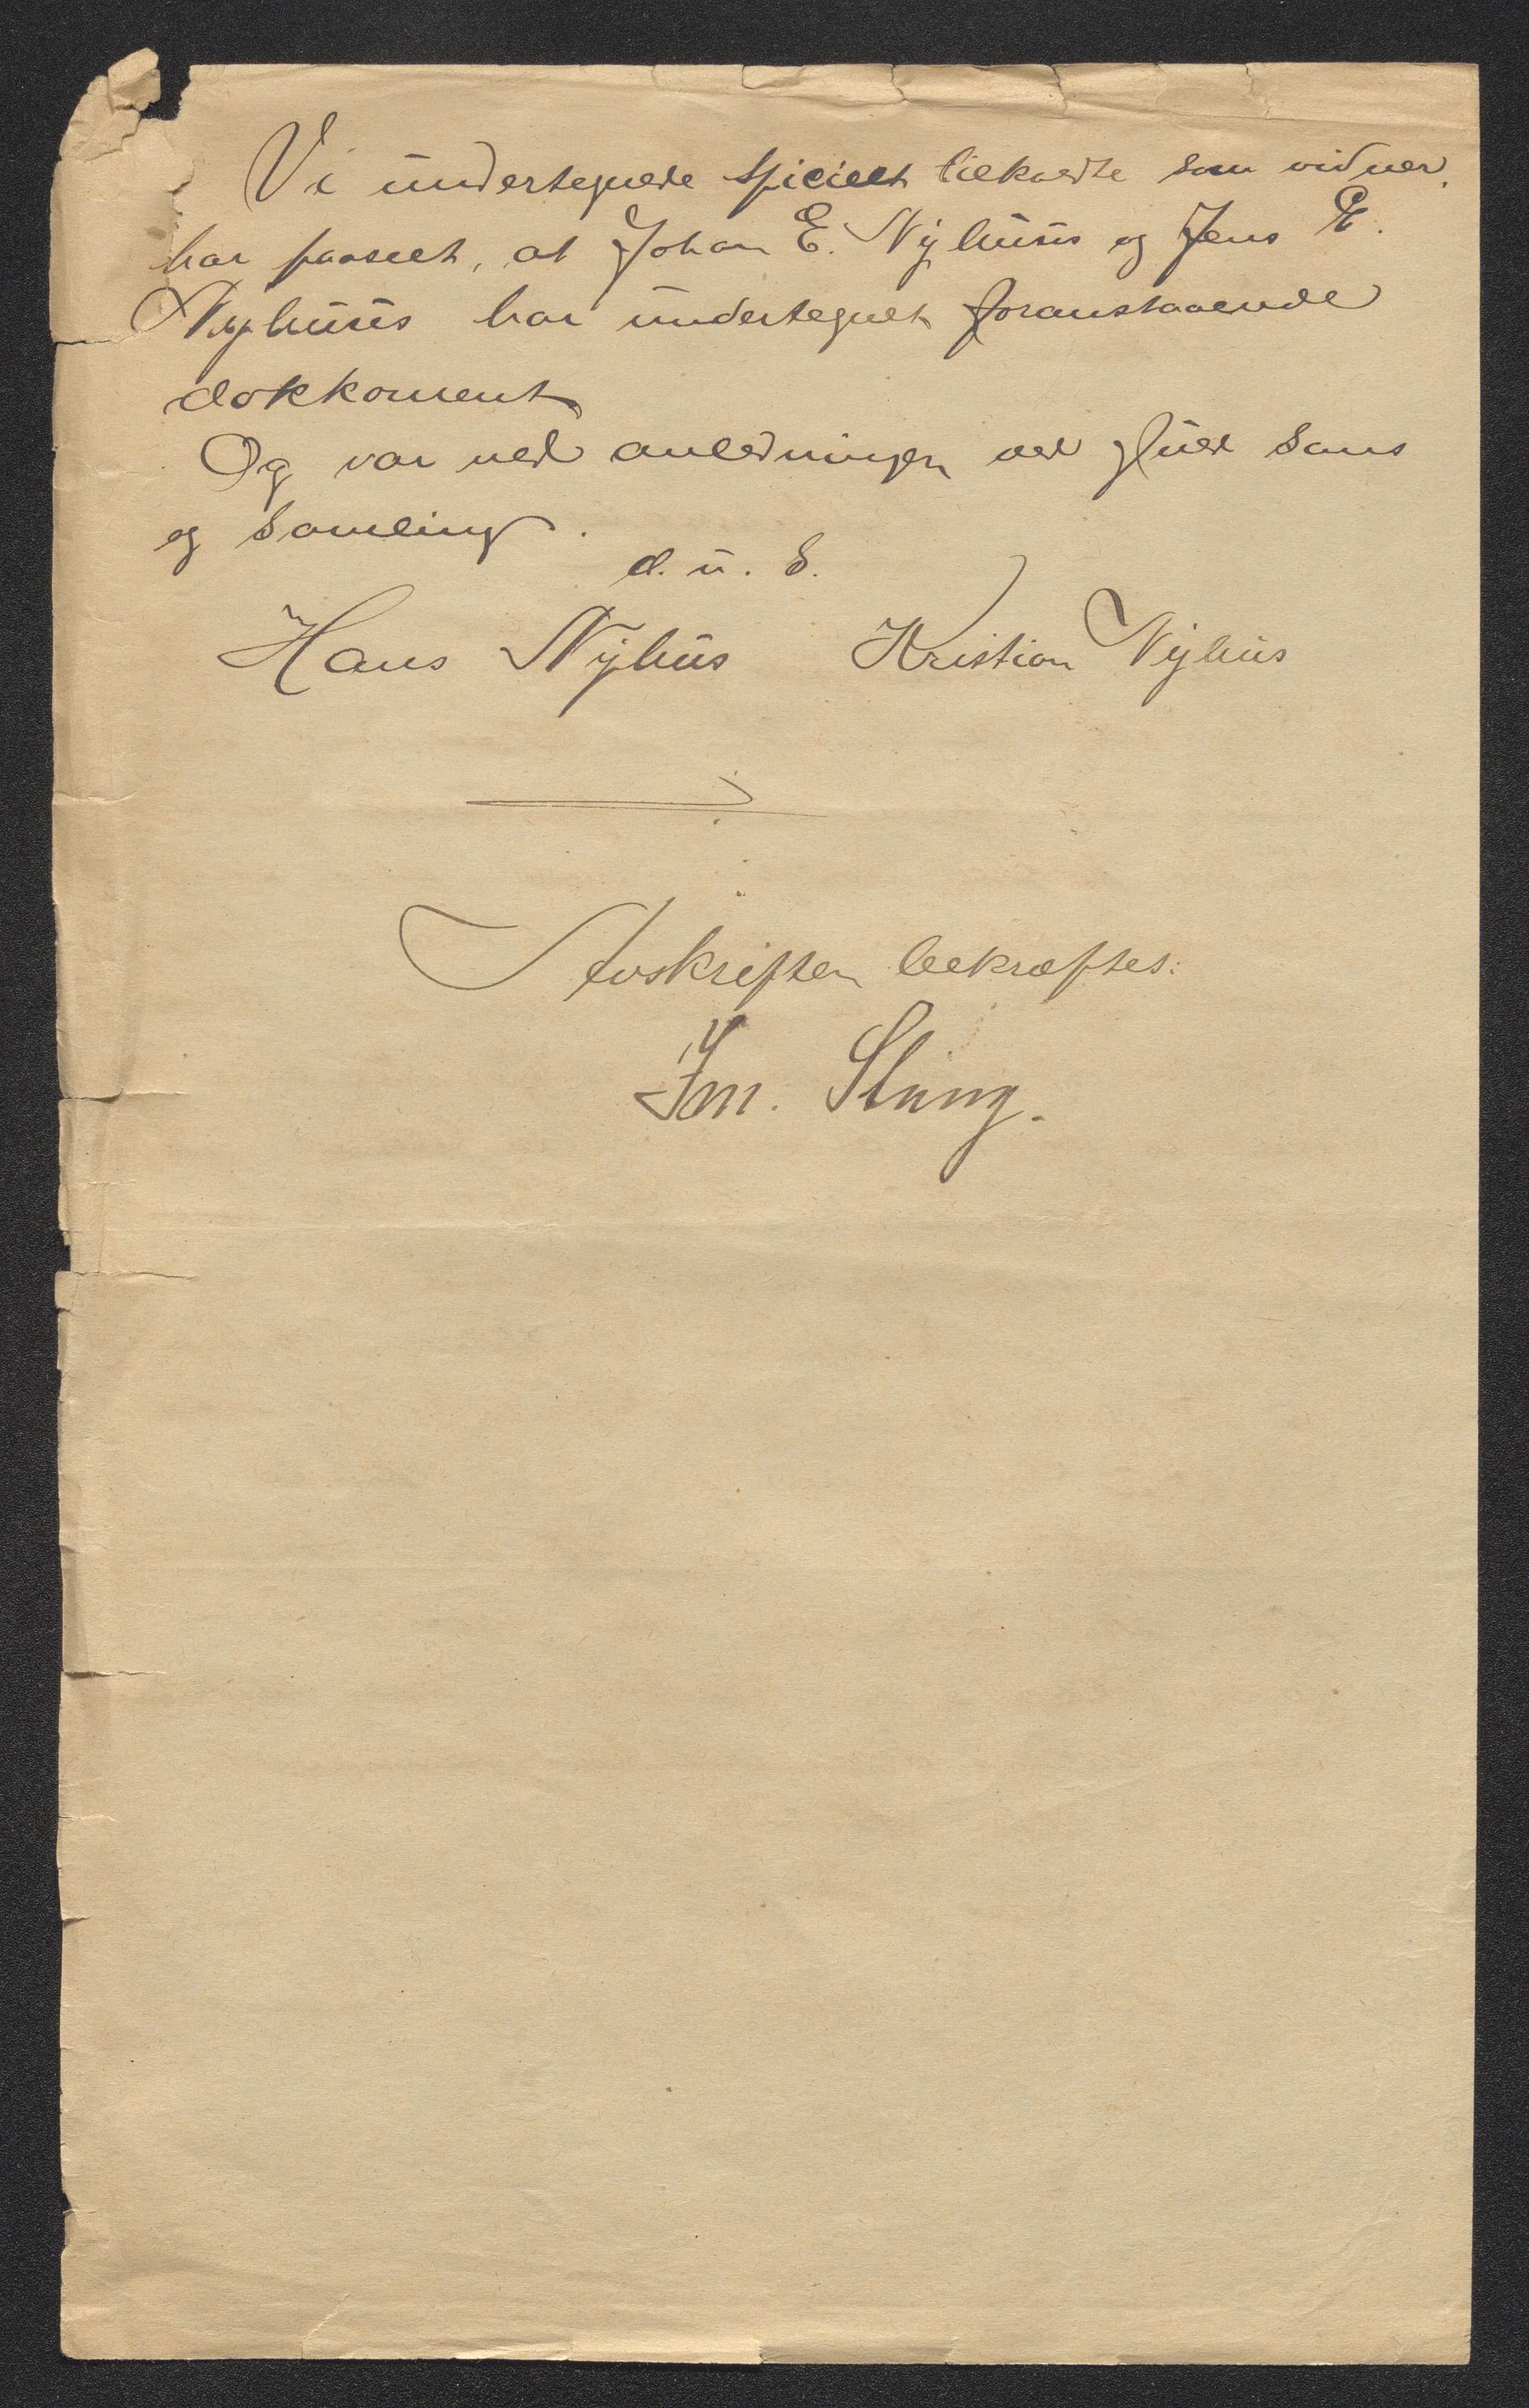 Vi undertegnede spicielt tilkaldte som vidner,
har paaseet, at Johan E. Nyhuus og Jens E.
Nyhuus har undertegnet foranstaaende
dokkoment
Og var ved anledningen ved fuld sans
og samling.
d. u. S.
Hans Nyhus Kristian Nyhus
Avskriften bekræftes:
Im. Stung.